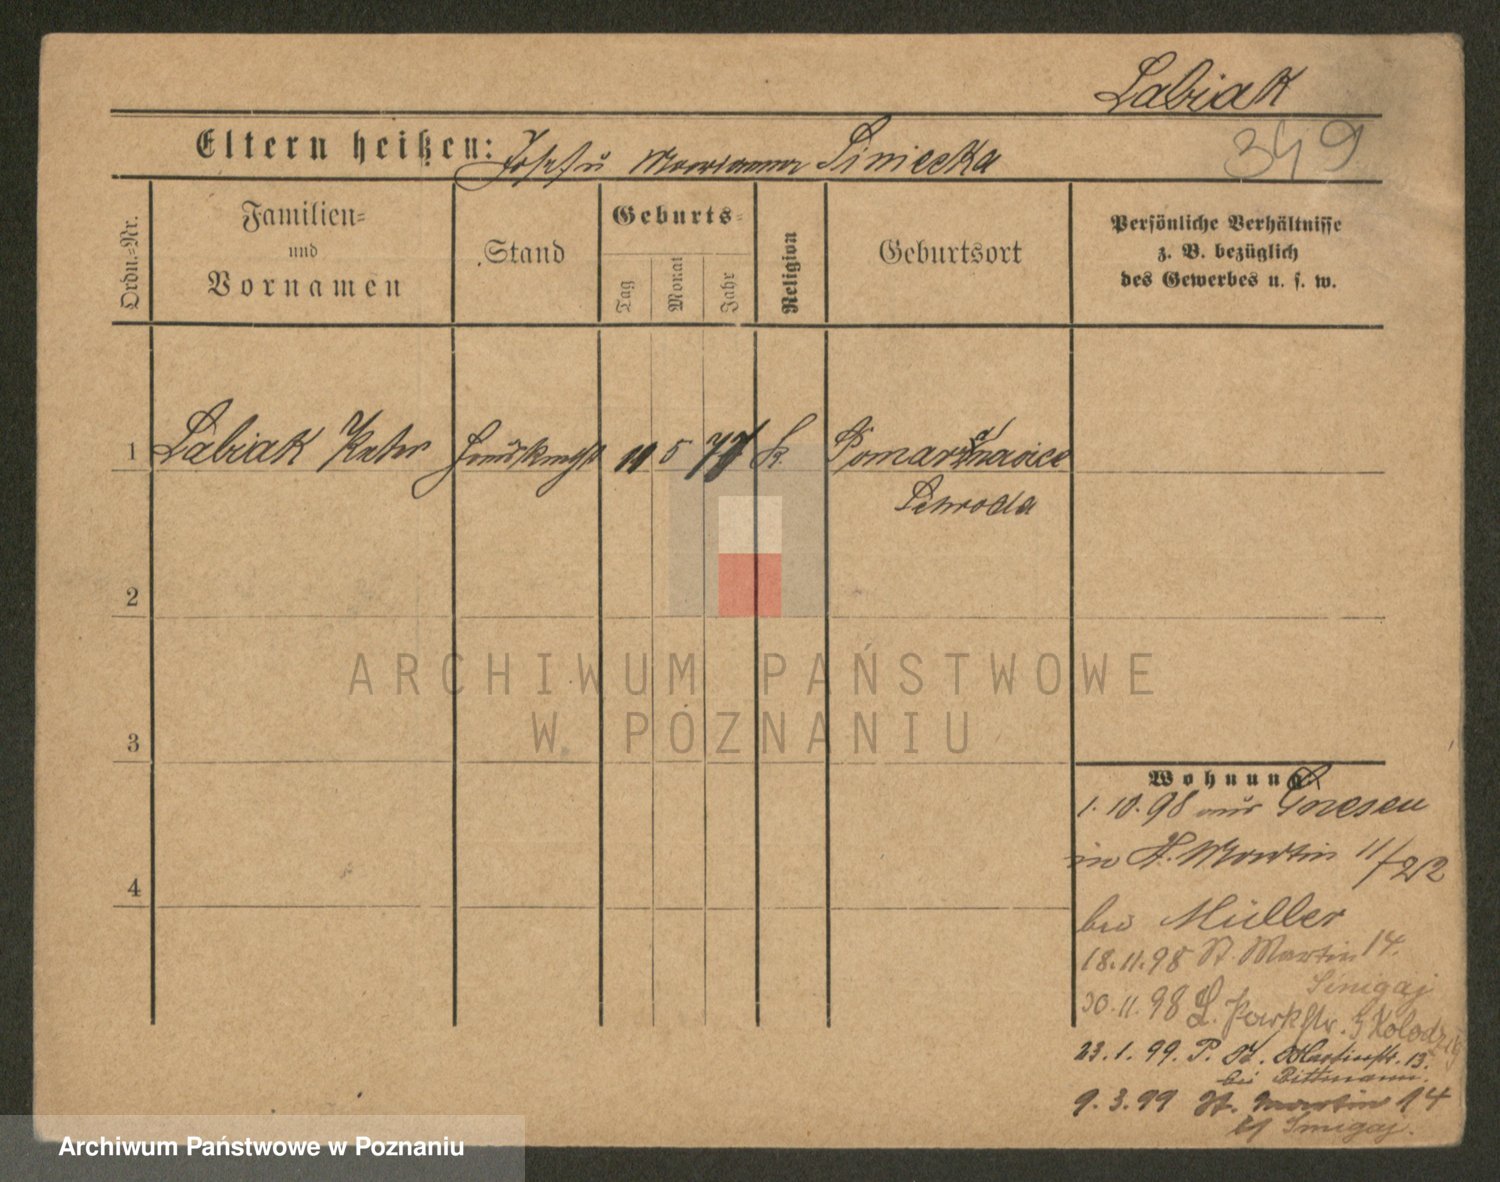 Labiak
349
Eltern heißen: Josef u Marianna Siniecka
Ordn.=Nr.
Familien=
und
Vornamen
Stand
Geburts=
Tag
Monat
Jahr
Religion
Geburtsort
Persönliche Verhältnisse
z. B. bezüglich
des Gewerbes u. s. w.
1 Labiak Peter Hausknecht 11 5 77 k.
Schroda
2
ARCHIWUM PAŃSTWOWE
W POZNANIU
3
Wohnung
1.10.98 aus Gnesen
in St. Martin 11/22
4
bei Müller
18.11.98 St. Martin 14.
Sinigaj
30.11.98 L. Parkstr. 5 Kolodzig
23.1.99. P. St. Martinstr. 13.
bei Bittmann.
9.3.99 St. Martin 14
Sinigaj.
Archiwum Państwowe w Poznaniu